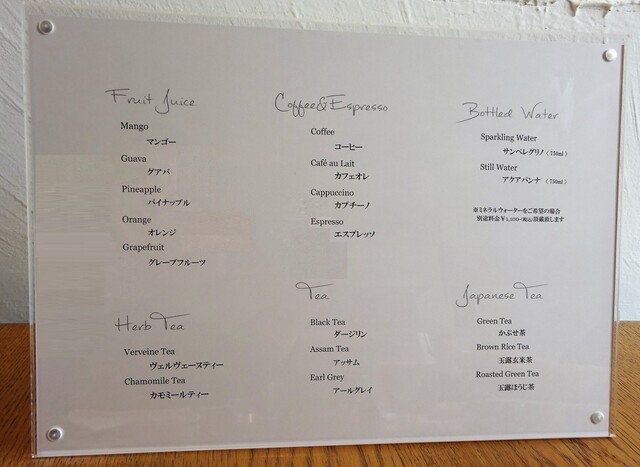 Fruit Juice
Mango
マンゴー
Guava
グアバ
Pineapple
パイナップル
Orange
オレンジ
Grapefruit
グレープフルーツ
Coffee&Espresso
Coffee
コーヒー
Café au Lait
カフェオレ
Cappuccino
カプチーノ
Espresso
エスプレッソ
Bottled Water
Sparkling Water
サンペレグリノ(750ml)
Still Water
アクアパンナ (750ml)
※ミネラルウォーターをご希望の場合
別途料金¥1,100-(税込)頂戴致します
Herb Tea
Verveine Tea
ヴェルヴェーヌティー
Chamomile Tea
カモミールティー
Tea
Black Tea
ダージリン
Assam Tea
アッサム
Earl Grey
アールグレイ
Japanese Tea
Green Tea
かぶせ茶
Brown Rice Tea
玉露玄米茶
Roasted Green Tea
玉露ほうじ茶